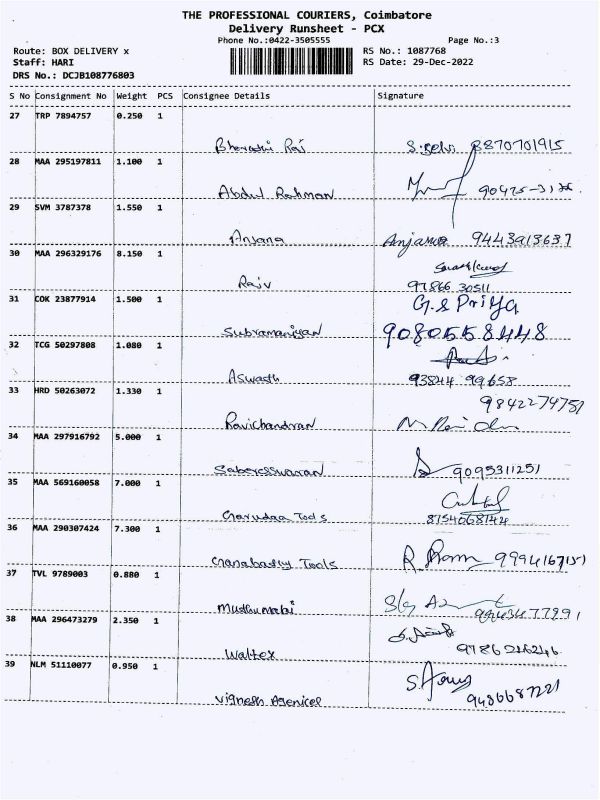 THE PROFESSIONAL COURIERS, Coimbatore
Delivery Runsheet - PCX
Phone No.:0422-3505555 Page No.:3
Route: BOX DELIVERY x RS No.: 1087768
Staff: HARI RS Date: 29-Dec-2022
DRS No.: DCJB108776803
S No Consignment No Weight PCS Consignee Details Signature
27 TRP 7894757 0.250 1
Bharathi Raj 8870701915
28 MAA 295197811 1.100 1
Abdul Rahman
29 SVM 3787378 1.550 1
Anjana Anjana 9443913637
30 MAA 296329176 8.150 1
Rajv 97866 30511
31 COK 23877914 1.500 1 G.S Priya
Subramaniyan 9080558448
32 TCG 50297808 1.080 1
Aswath 93844 99658
33 HRD 50263072 1.330 1 9842274757
Ravichandran
34 MAA 297916792 5.000 1
Sabareeswaran 9095311251
35 MAA 569160058 7.000 1
Garudaa Tools 8754068142
36 MAA 290307424 7.300 1
Ganabathy Tools 9994167151
37 TVL 9789003 0.880 1
Muthumabi
38 MAA 296473279 2.350 1
Waltex 9786246246
39 NLM 51110077 0.950 1
Vignesh Agencies 9486687221